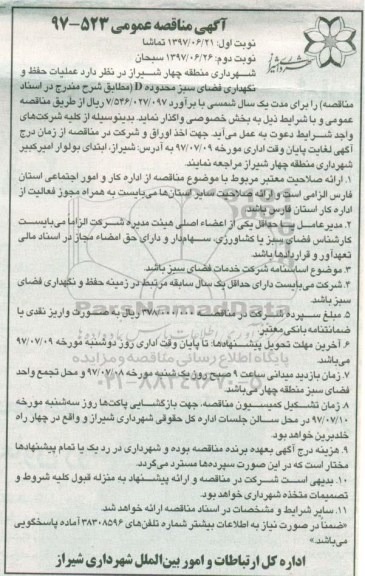 آگهی مناقصه عمومی ۵۲۳-۹۷
نوبت اول: ۱۳۹۷/۰۶/۲۱ تماشا
نوبت دوم: ۱۳۹۷/۰۶/۲۶ سبحان
شهرداری منطقه چهار شیراز در نظر دارد عملیات حفظ و
نگهداری فضای سبز محدوده D (مطابق شرح مندرج در اسناد
مناقصه) را برای مدت یک سال شمسی با برآورد ۷/۵۴۶/۰۲۷/۰۹۷ ریال از طریق مناقصه
عمومی و با شرایط ذیل به بخش خصوصی واگذار نماید. بدینوسیله از کلیه شرکت‌های
واجد شرایط دعوت به عمل می‌آید جهت اخذ اوراق و شرکت در مناقصه از زمان درج
آگهی لغایت پایان وقت اداری مورخه ۹۷/۰۷/۰۹ به آدرس: شیراز، ابتدای بولوار امیرکبیر
شهرداری منطقه چهار شیراز مراجعه نمایند.
۱. ارائه صلاحیت معتبر مربوط با موضوع مناقصه از اداره کار و امور اجتماعی استان
فارس الزامی است. ارائه صلاحیت سایر استان‌ها می‌بایست به همراه مجوز فعالیت از
اداره کار استان فارس باشد.
۲. مدیرعامل یا حداقل یکی از اعضاء اصلی هیئت مدیره شرکت الزاماً می‌بایست
کارشناس فضای سبز یا کشاورزی، سهام‌دار و دارای حق امضاء مجاز در اسناد مالی
تعهدآور و قراردادها باشد.
۳. موضوع اساسنامه شرکت خدمات فضای سبز باشد.
۴. شرکت می‌بایست دارای حداقل یک سال سابقه مرتبط در زمینه حفظ و نگهداری فضای
سبز باشد.
۵. مبلغ سپرده شرکت در مناقصه ۳۷۸/۰۰۰/۰۰۰ ریال به صورت واریز نقدی یا
ضمانتنامه بانکی معتبر
۶. آخرین مهلت تحویل پیشنهادها: تا پایان وقت اداری روز دوشنبه مورخه ۹۷/۰۷/۰۹
می‌باشد.
۷. زمان بازدید میدانی ساعت ۹ صبح روز یک شنبه مورخه ۹۷/۰۷/۰۸ و محل تجمع واحد
فضای سبز منطقه چهار می‌باشد.
۸. زمان تشکیل کمیسیون مناقصه، جهت بازگشایی پاکت‌ها روز سه‌شنبه مورخه
۹۷/۰۷/۱۰ در محل سالن جلسات اداره کل حقوقی شهرداری شیراز و واقع در چهار راه
خلدبرین خواهد بود.
۹. هزینه درج آگهی بعهده برنده مناقصه بوده و شهرداری در رد یک یا تمام پیشنهادها
مختار است که در این صورت سپرده‌ها مسترد می‌گردد.
۱۰. بدیهی است شرکت در مناقصه و ارائه پیشنهاد به منزله قبول کلیه شروط و
تصمیمات متخذه شهرداری خواهد بود.
۱۱. سایر شرایط و مشخصات در اسناد مناقصه ارائه خواهد شد.
«ضمناً در صورت نیاز به اطلاعات بیشتر شماره تلفن‌های ۳۸۳۰۸۵۹۶ آماده پاسخگویی
می‌باشد.»
اداره کل ارتباطات و امور بین‌الملل شهرداری شیراز